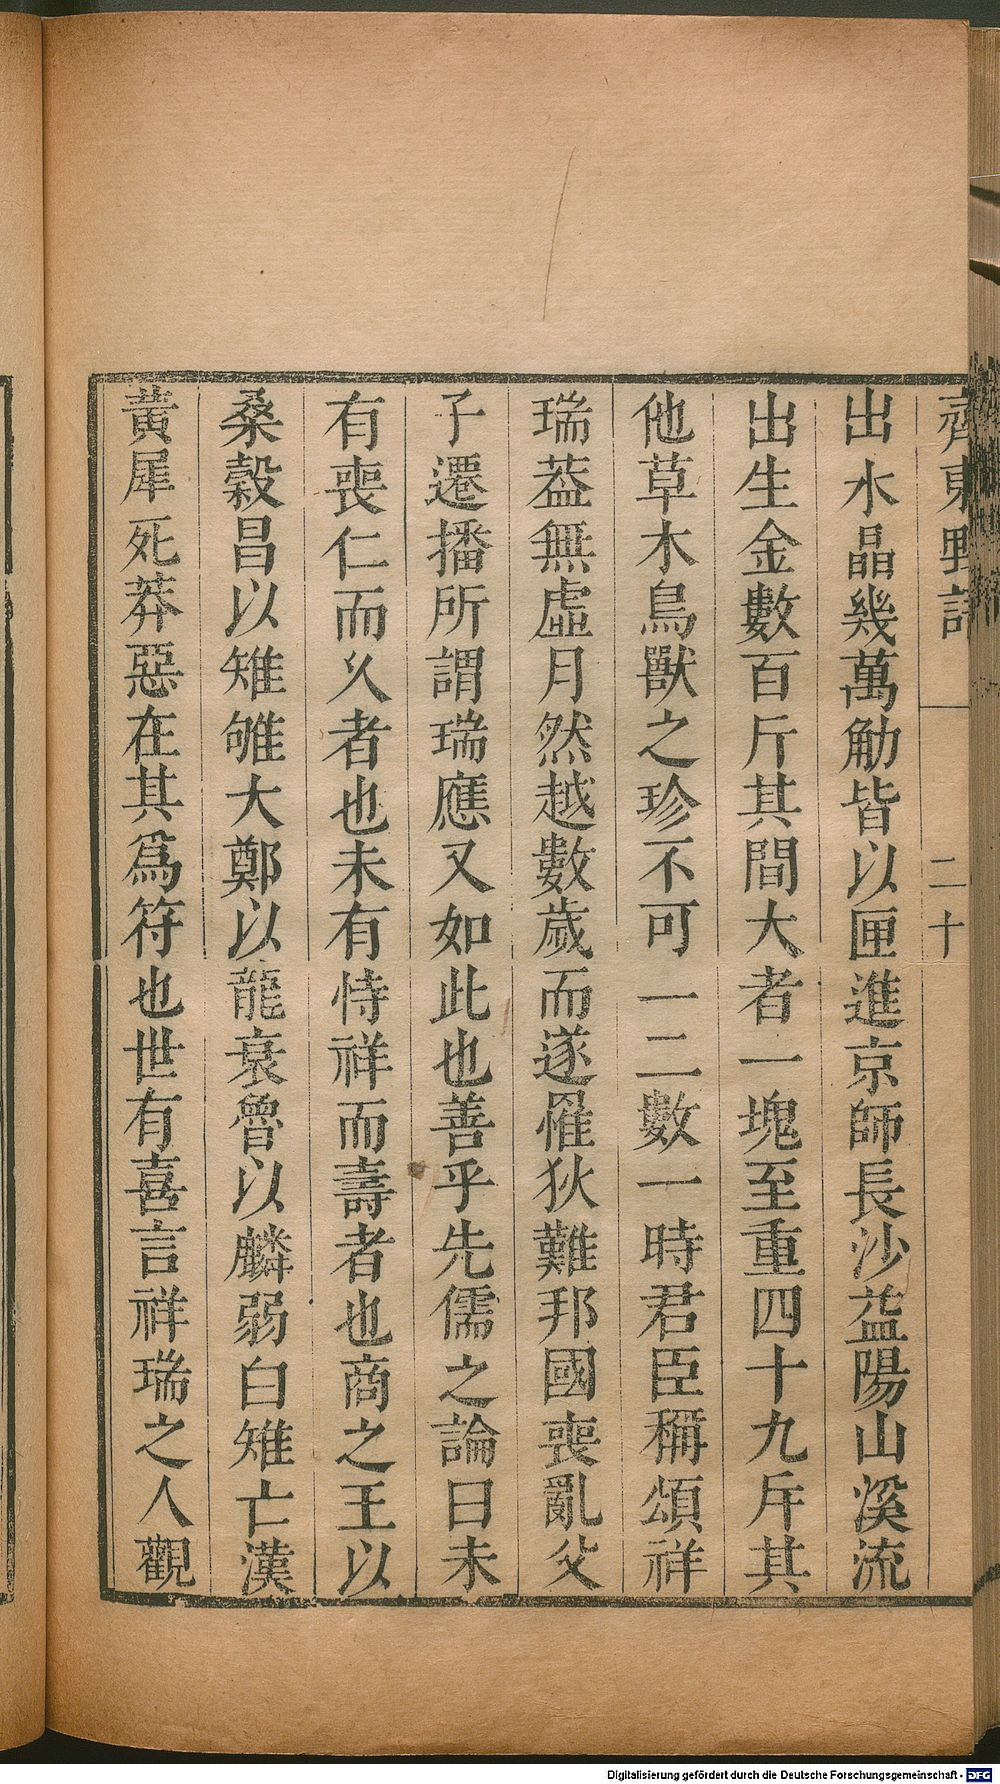 齊東野語
二十
出水晶幾萬觔皆以匣進京師長沙益陽山溪流
出生金數百斤其間大者一塊至重四十九斤其
他草木鳥獸之珍不可一二數一時君臣稱頌祥
瑞葢無虛月然越數歲而遂罹狄難邦國喪亂父
子遷播所謂瑞應又如此也善乎先儒之論曰未
有喪仁而久者也未有恃祥而壽者也商之王以
桑穀昌以雉雊大鄭以龍衰魯以麟弱白雉亡漢
黃犀死莽惡在其爲符也世有喜言祥瑞之人觀
Digitalisierung gefördert durch die Deutsche Forschungsgemeinschaft - DFG